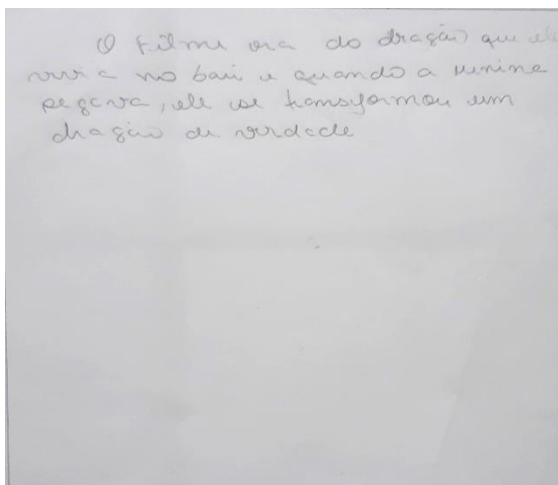 O Filme era do dragão que ele
vivia no baú e quando a menina
pegava, ele se transformou em
dragão de verdade